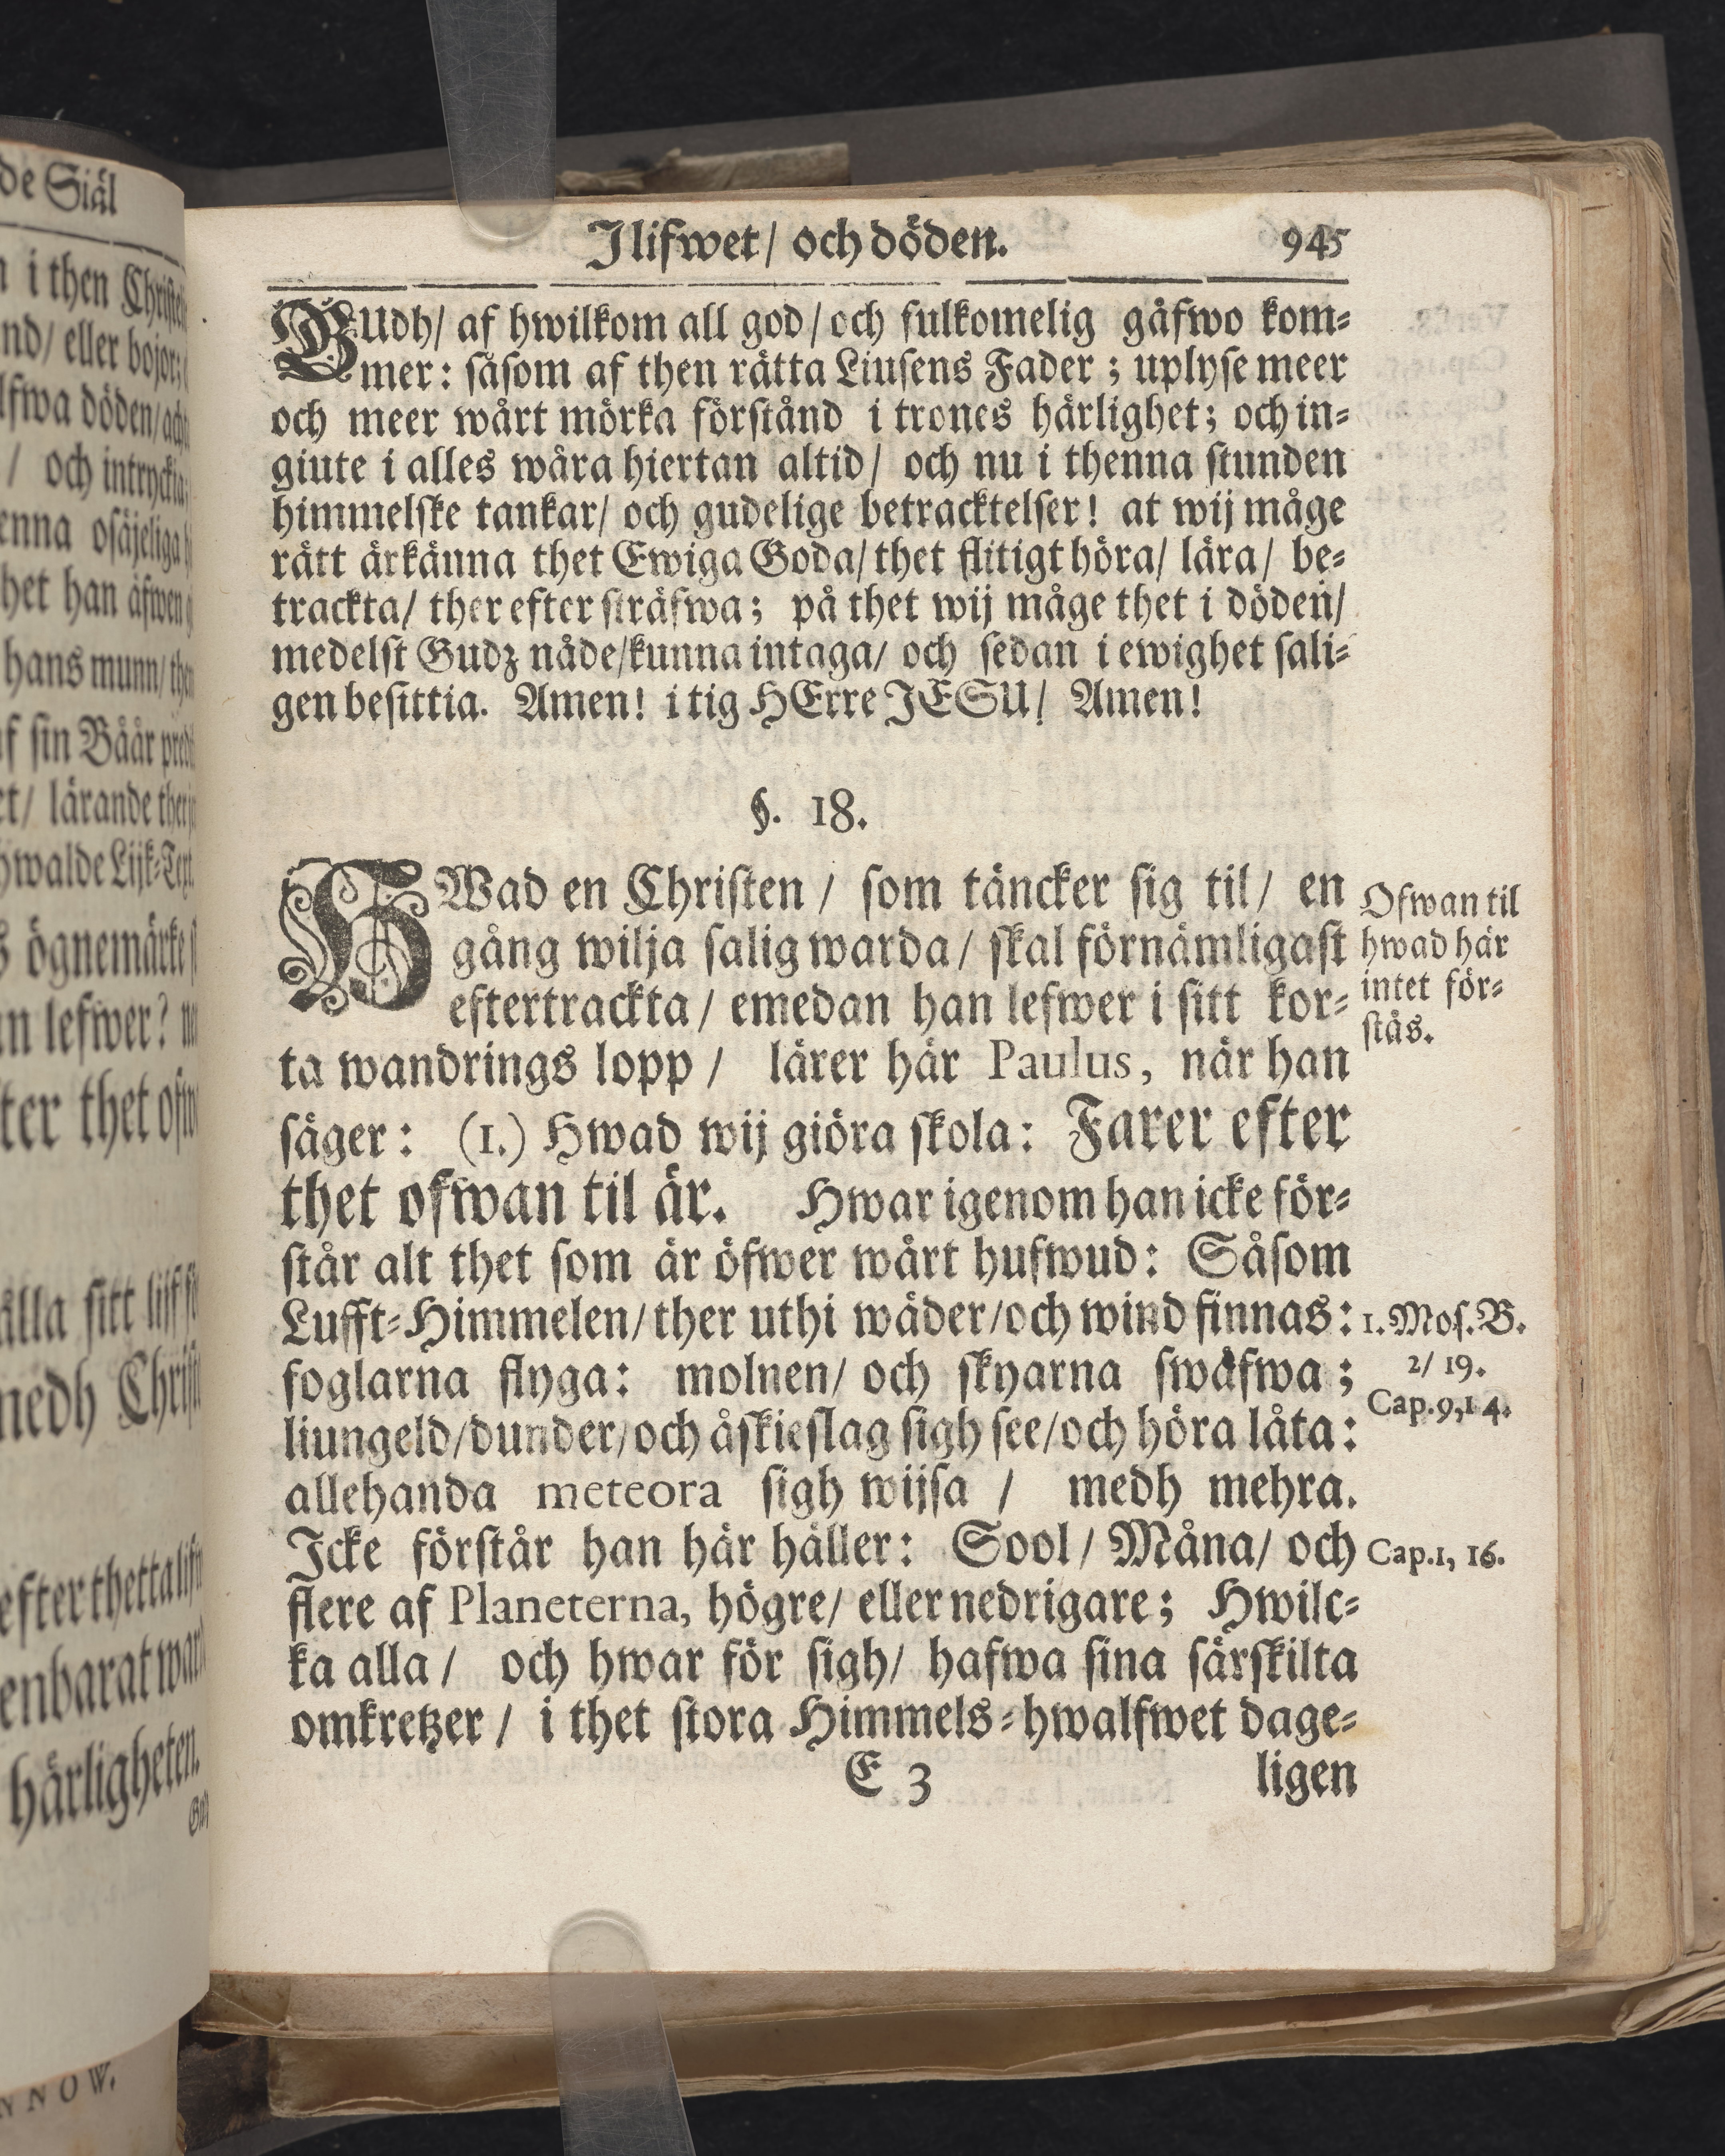 I lifwet/ och döden. 945
GUdh/ af hwilkom all god/ och fulkomelig gåfwo kom=
mer: såsom af then rätta Liusens Fader; uplyse meer
och meer wårt mörka förstånd i trones härlighet; och in=
giute i alles wåra hiertan altid/ och nu i thenna stunden
himmelske tankar/ och gudelige betracktelser! at wij måge
rätt ärkänna thet Ewiga Goda/ thet flitigt höra/ lära/ be=
trackta/ ther efter sträfwa; på thet wij måge thet i döden/
medelst Gudz nåde/ kunna intaga/ och sedan i ewighet sali=
gen besittia. Amen! i tig HErre JESU/ Amen!
§. 18.
HWad en Christen/ som täncker sig til/ en
gång wilja salig warda/ skal förnämligast
eftertrackta/ emedan han lefwer i sitt kor=
ta wandrings lopp/ lärer här Paulus, när han
säger: (1.) Hwad wij giöra skola: Farer efter
thet ofwan til är. Hwar igenom han icke för=
står alt thet som är öfwer wårt hufwud: Såsom
Lufft=Himmelen/ ther uthi wäder/ och wind finnas:
foglarna flyga: molnen/ och skyarna swäfwa;
liungeld/ dunder/ och åskieslag sigh see/ och höra låta:
allehanda meteora sigh wijsa/ medh mehra.
Icke förstår han här häller: Sool/ Måna/ och
flere af Planeterna, högre/ eller nedrigare; Hwilc=
ka alla/ och hwar för sigh/ hafwa sina särskilta
omkretzer/ i thet stora Himmels=hwalfwet dage=
E 3 ligen
Ofwan til
hwad här
intet för=
stås.
1. Mos. B.
2/ 19.
Cap. 9, 14.
Cap. 1, 16.
de Siäl
i then
nd/ eller bojor;
fwa döden/
/ och intryckia
enna osäjeliga
het han äfwen
hans munn/
f sin Båår
et/ lärande
hwalde Lijk=Text
s ögnemärke
n lefwer?
ter thet
ålla sitt lijf
medh
efter thetta
enbarat
härligheten.
NNOW.